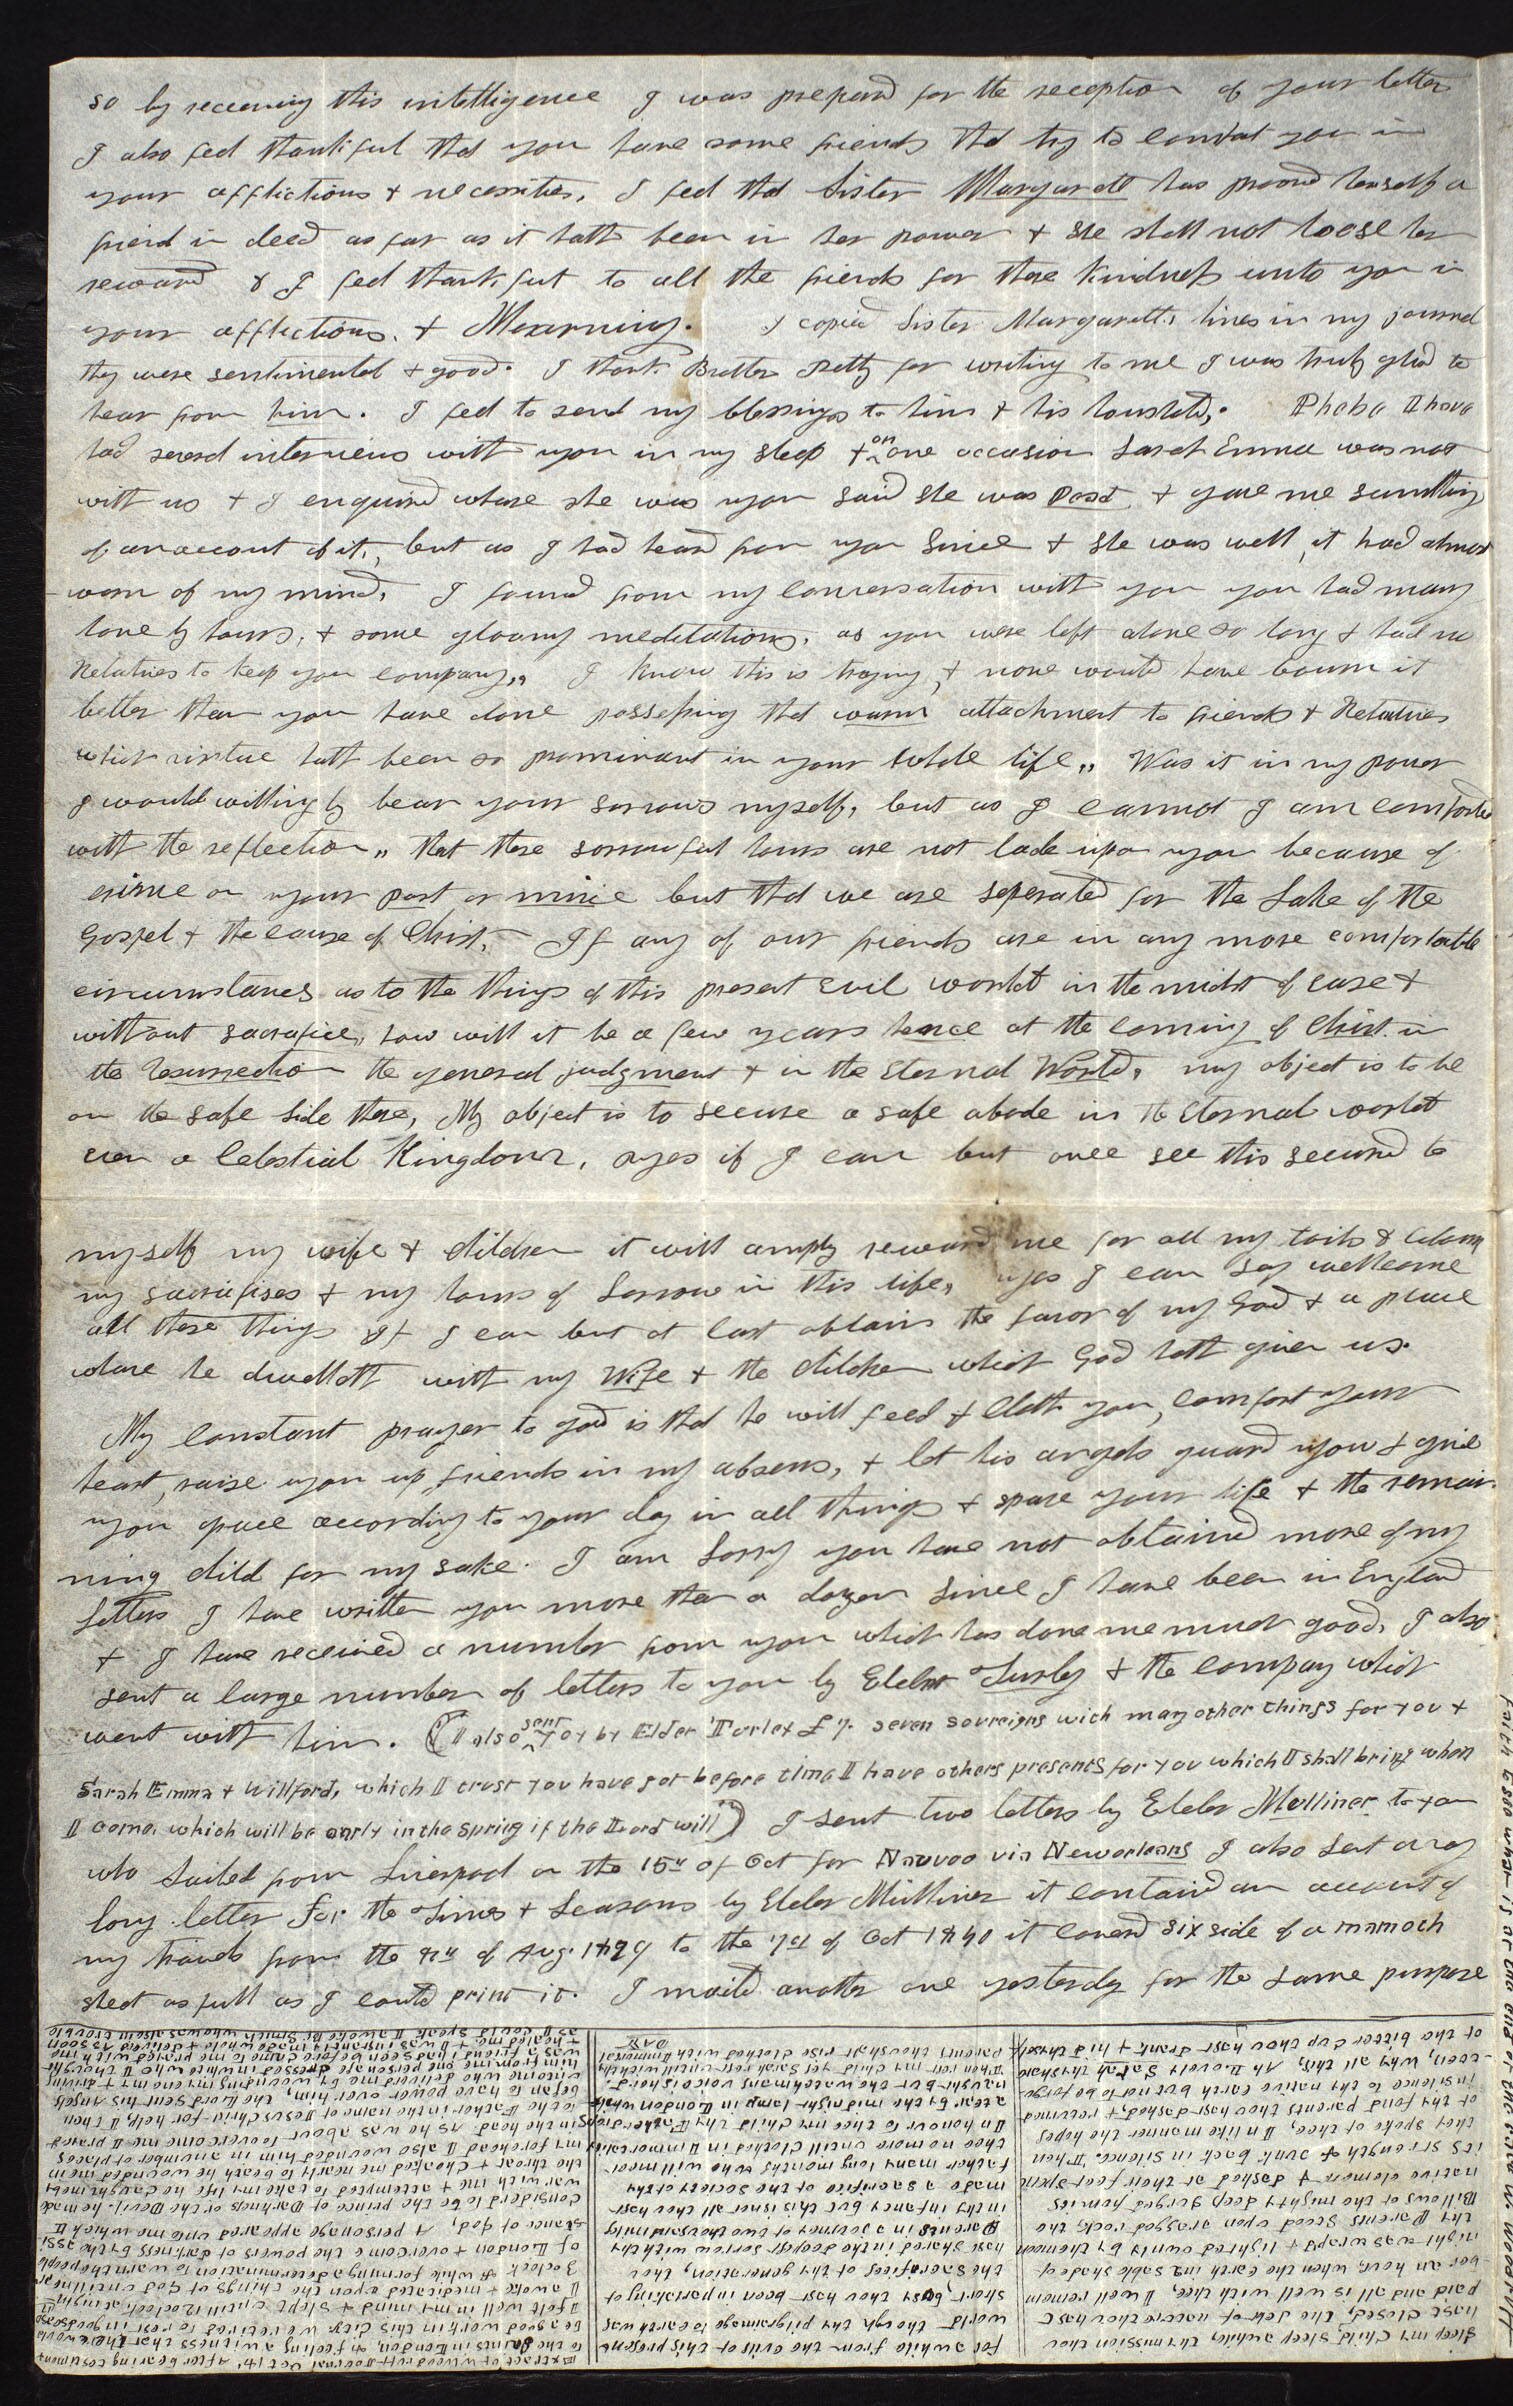 so by receiving this intelligence I was prepard for the reception of your letter
I also feel thankful that you have some friends that try to comfort you in
your afflictions & necessities, I feel that Sister Margarett has proovd herself a
friend in deed as far as it hath been in her power & she shall not loose her
reward & I feel thankful to all the friends for there kindness unto you in
your afflictions, & Mourning. I copied Sister Margaretts lines in my journal
they were sentimental & good. I thank Brother Petty for writing to me I was truly glad to
hear from him. I feel to send my blessings to him & his household,. Phebe I have
had several interviews with you in my sleep & on one occasion Sarah Emma was not
with us & I enquired whare she was you said she was Dead & gave me sumthing
of an account of it, but as I had heard from you Since & she was well, it had almost
worn of my mind, I found from my conversation with you you had many
lonely hours, & some gloomy meditations, as you were left alone so long & had no
Relatives to keep you company,, I know this is trying, & none would have bourn it
better than you have done possessing that warm attachment to friends & Relatives
which virtue hath been so prominant in your whole life,, Was it in my power
I would willingly bear your sorrows myself, but as I cannot I am comforted
with the reflection,, that these sorrowful hours are not lade upon you because of
crime on your part or mine but that we are seperated for the Sake of the
Gospel & the cause of Christ, If any of our friends are in any more comfortable
circumstances as to the things of this present evil world in the midst of ease &
without sacrafice, how will it be a few years hence at the coming of Christ in
the Resurrection the general judgment & in the Eternal World, my object is to be
on the safe side there, My object is to secure a safe abode in the Eternal world
even a Celestial Kingdom, O yes if I can but once see this secured to
myself my wife & children it will amply reward me for all my toils & labors
my sacrafises & my hours of Sorrow in this life, yes I can say wellcome
all these things If I can but at last obtain the favor of my God & a place
whare he dwelleth with my Wife & the children which God hath given us.
My constant prayer to god is that he will feed & cloth you, comfort your
heart, raise you up friends in my absens, & let his angels guard you & give
you grace according to your day in all things & spare your life & the remai-
ning child for my sake. I am Sorry you have not obtained more of my
letters I have written you more than a dozen Since I have been in England
& I have received a number from you which has done me much good, I also
sent a large number of letters to you by Elder Turley & the company which
went with him. (I also sent you by Elder Turley £7. seven sovreigns with many other things for you &
Sarah Emma & Willford, which I trust you have got before time I have others presents for you which I shall bring when
I come, which will be early in the spring if the Lord will) I sent two letters by Elder Mulliner to you
who Sailed from Liverpool on the 15th of Oct for Nauvoo via Neworleans I also sent a very
long letter for the Times & Seasons by Elder Mulliner it containd an account of
my travels from the of Aug. 1839 to the of Oct 1840 it coverd six side of a mamoth
sheet as full as I could print it. I maild another one yesterday for the same purpose
Sleep my Child Sleep awhile, thy mission thou
hast closed, the debt of nature thou hast
paid and all is well with thee, I well remem
ber an hour, when the earth in a sable shade of
night was wrapt & lighted ownly by the moon
thy Parents stood upon a ragged rock, the
Billows of the mighty deep surged from its
native element & dashed at their feet spent
its strength & sunk back in silence. Then
they spoke of thee, In like manner the hopes
of thy fond parents thou hast dashed, & returned
in silence to thy native earth but not to be forgo-
tten, why all this, Ah Lovely Sarah this
of the bitter cup thou hast drank & hid thyself
for awhile from the evils of this present
world. though thy pilgrimage to earth was
short, but thou hast been in partaking of
the sacrafices of thy generation, thou
hast shared in the deepest sorrow with thy
Parents in a journey of two thousand miles
in thy infancy but this is not all thou hast
made a sacrafice of the society of thy
father many long months who will meet
thee no more untill clothed in immortality
In honour to thee my child thy Father drops
a tear by the midnight lamp in London while
naught but the watchmans voice is heard.
Then rest my child yes Sarah rest untill with thy
parents thou shalt rise clothed with Immortal
DAY
Extract of W Woodruff Journal Oct 14. After bearing testimony
to the Saints in London, & feeling a witness that there would
be a good work in this city we retired to rest in good season
I felt well in my mind & slept untill 12 oclock at night
I awoke & meditated upon the things of God untill near
3 oclock & while forming a determination to warn the people
of London & overcome the powers of darkness by the assi
stance of God, A personage appeared unto me which I
considerd to be the prince of Darkness or the Devil. he made
war with me & attempted to take my life he caught me by
the throat & choaked me nearly to death he wounded me in
my forehead I also wounded him in a number of places
in the head As he was about to overcome me I prayed
to the Father in the name of Jesus Christ for help, I then
began to have power over him,